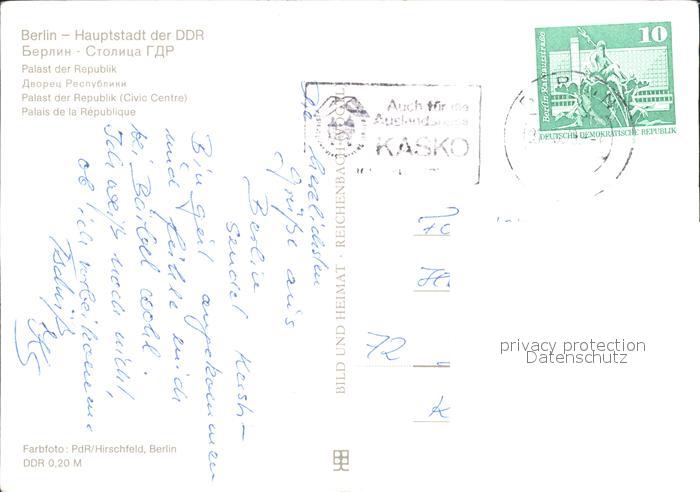 Berlin – Hauptstadt der DDR
Берлин · Столица ГДР
Palast der Republik
Дворец Республики
Palast der Republik (Civic Centre)
Palais de la République
Die herzlichsten
Grüße aus
Berlin
sendet
Bin gut angekommen
und fühle mich
bei Bärbel wohl.
Ich weiß noch nicht,
ob ich vorbeikomme.
Tschüß
Farbfoto: PdR/Hirschfeld, Berlin
DDR 0,20 M
BILD UND HEIMAT · REICHENBACH
Auch für die
Auslandsreise
KASKO
10
DEUTSCHE DEMOKRATISCHE REPUBLIK
72
privacy protection
Datenschutz